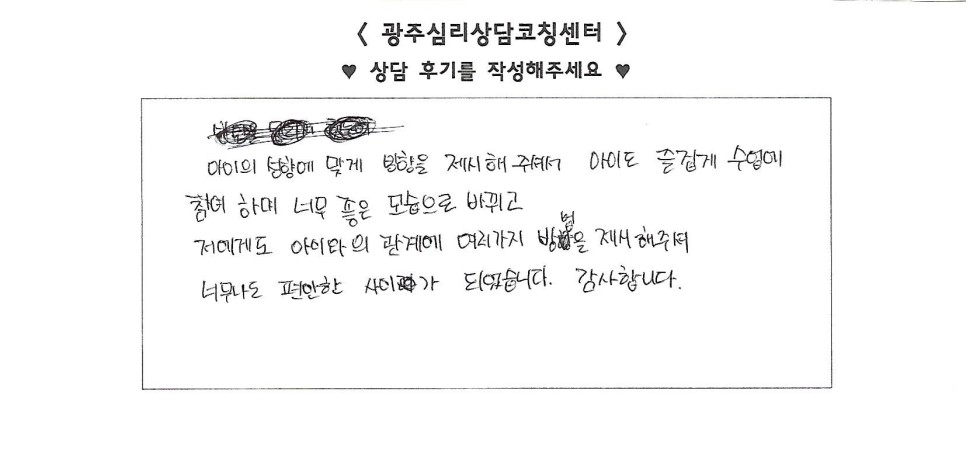 < 광주심리상담코칭센터 >
♥ 상담 후기를 작성해주세요 ♥
아이의 성향에 맞게 방향을 제시해 주셔서 아이도 즐겁게 수업에
참여 하며 너무 좋은 모습으로 바뀌고
저에게도 아이와의 관계에 여러가지 방법을 제시해주셔
너무나도 편안한 사이가 되었습니다. 감사합니다.